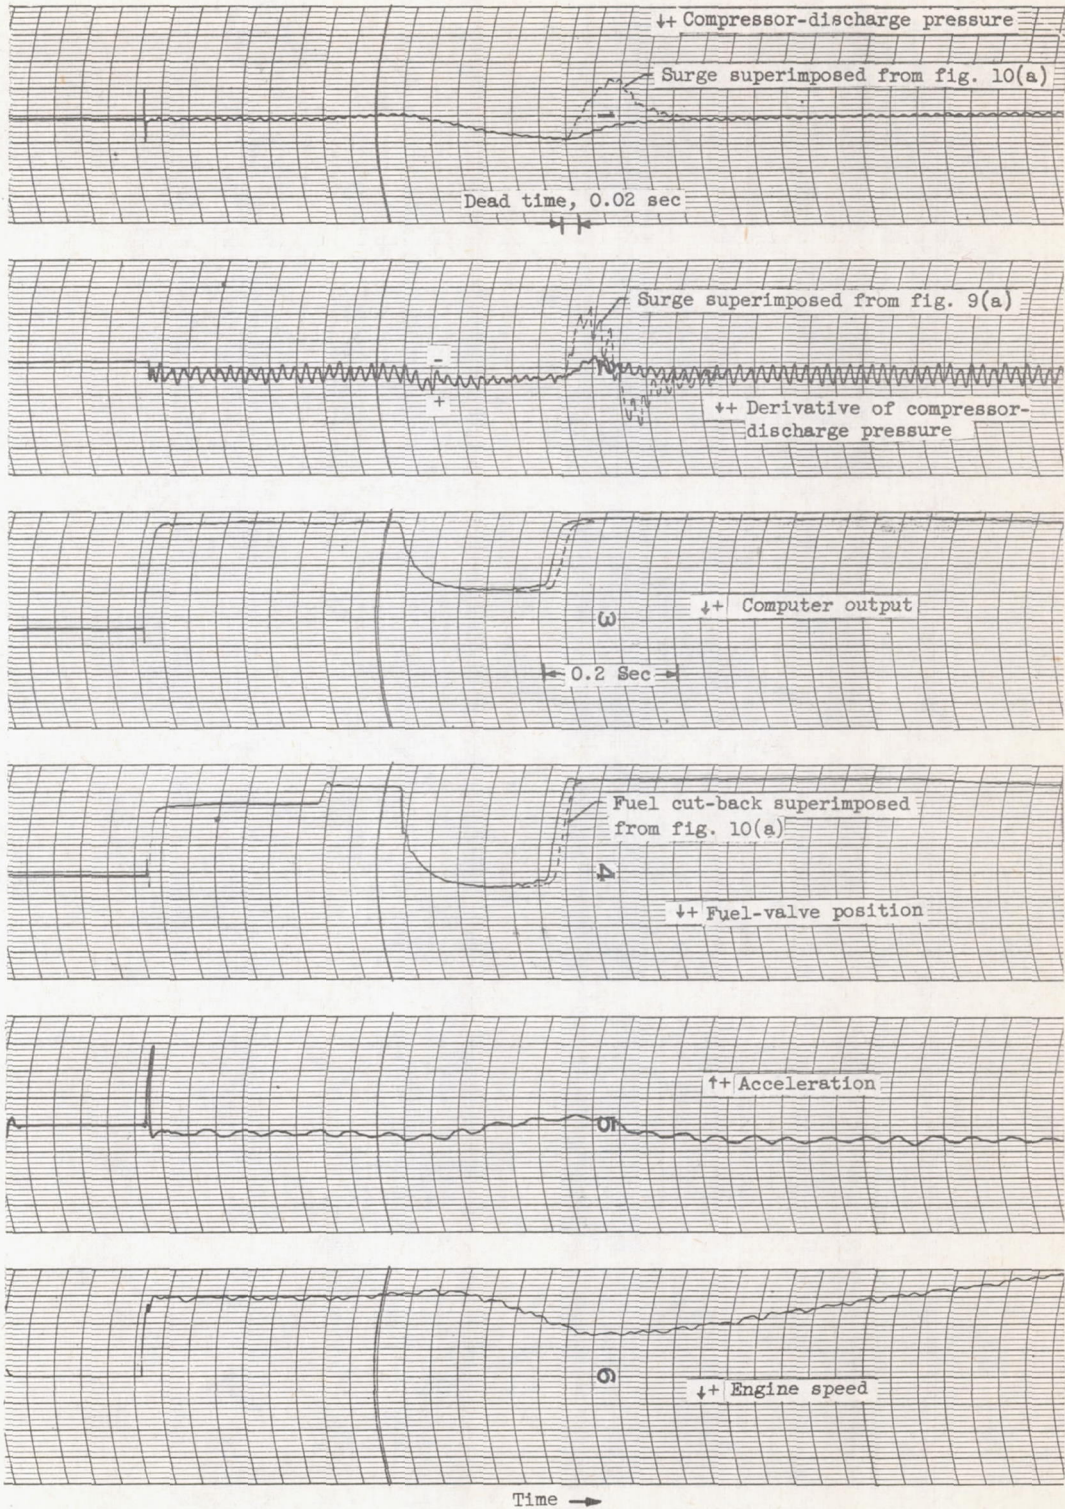 ↓+ Compressor-discharge pressure
Surge superimposed from fig. 10(a)
1
Dead time, 0.02 sec
Surge superimposed from fig. 9(a)
-
+
↓+ Derivative of compressor-
discharge pressure
3
↓+ Computer output
0.2 Sec
Fuel cut-back superimposed
from fig. 10(a)
4
↓+ Fuel-valve position
↑+ Acceleration
5
6
↓+ Engine speed
Time →